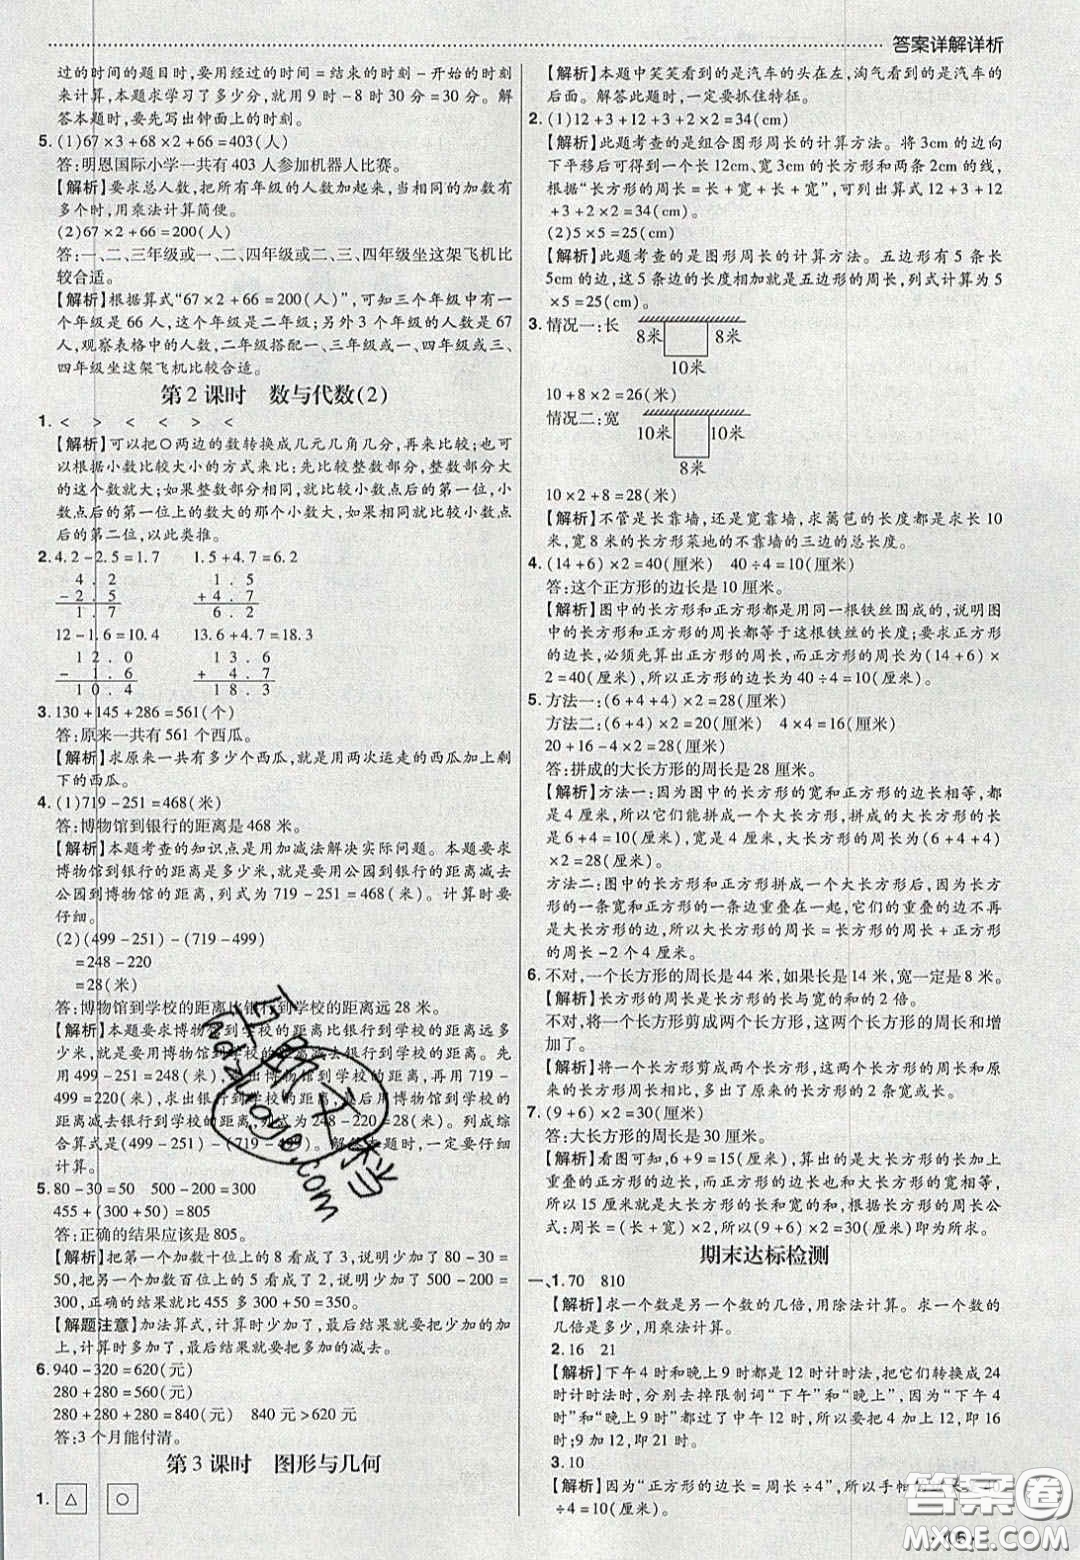 答案详解详析
过的时间的题目时,要用经过的时间=结束的时刻-开始的时刻
来计算,本题求学习了多少分,就用9时-8时30分=30分。解
答本题时,要先写出钟面上的时刻。
5.(1)67×3+68×2+66=403(人)
答:明恩国际小学一共有403人参加机器人比赛。
【解析】要求总人数,把所有年级的人数加起来,当相同的加数有
多个时,用乘法计算简便。
(2)67×2+66=200(人)
答:一、二、三年级或一、二、四年级或二、三、四年级坐这架飞机比
较合适。
【解析】根据算式“67×2+66=200(人)”,可知三个年级中有一
个年级是66人,这个年级是二年级;另外3个年级的人数是67
人,观察表格中的人数,二年级搭配一、三年级或一、四年级或三、
四年级坐这架飞机比较合适。
第2课时 数与代数(2)
1.< > > < > <
【解析】可以把○两边的数转换成几元几角几分,再来比较;也可
以根据小数比较大小的方式来比:先比较整数部分,整数部分大
的这个数就大;如果整数部分相同,就比较小数点后的第一位,小
数点后的第一位上的数大的那个小数大,如果相同就比较小数点
后的第二位,以此类推。
2.4.2-2.5=1.7 1.5+4.7=6.2
4.2 1.5
-2.5 +4.7
1.7 6.2
12-1.6=10.4 13.6+4.7=18.3
12.0 13.6
-1.6 +4.7
10.4 18.3
3.130+145+286=561(个)
答:原来一共有561个西瓜。
【解析】求原来一共有多少个西瓜,就是用两次运走的西瓜加上剩
下的西瓜。
4.(1)719-251=468(米)
答:博物馆到银行的距离是468米。
【解析】本题考查的知识点是用加减法解决实际问题。本题要求
博物馆到银行的距离是多少米,就是要用公园到银行的距离减去
公园到博物馆的距离,列式为719-251=468(米)。计算时要
仔细。
(2)(499-251)-(719-499)
=248-220
=28(米)
答:博物馆到学校的距离比银行到学校的距离远28米。
【解析】本题要求博物馆到学校的距离比银行到学校的距离远多
少米,就是要用博物馆到学校的距离减去银行到学校的距离。先
用499-251=248(米),求出博物馆到学校的距离;再用719-
499=220(米),求出银行到学校的距离,最后用博物馆到学校的
距离减去银行到学校的距离,列式为248-220=28(米)。列成综
合算式是(499-251)-(719-499)。解答本题时,一定要仔细
计算。
5.80-30=50 500-200=300
455+(300+50)=805
答:正确的结果应该是805。
【解析】把第一个加数十位上的8看成了3,说明少加了80-30=
50,把第二个加数百位上的5看成了2,说明少加了500-200=
300,正确的结果就比455多300+50=350。
【解题注意】加法算式,计算时少加了,最后结果就要把少加的加
上,计算时多加了,最后结果就要把多加的减去。
6.940-320=620(元)
280+280=560(元)
280+280+280=840(元) 840元>620元
答:3个月能付清。
第3课时 图形与几何
1.△ ○
【解析】本题中笑笑看到的是汽车的头在左,淘气看到的是汽车的
后面。解答此题时,一定要抓住特征。
2.(1)12+3+12+3+2×2=34(cm)
【解析】此题考查的是组合图形周长的计算方法。将3cm的边向
下平移后可得到一个长12cm、宽3cm的长方形和两条2cm的线,
根据“长方形的周长=长+宽+长+宽”,可列出算式12+3+12
+3+2×2=34(cm)。
(2)5×5=25(cm)
【解析】此题考查的是图形周长的计算方法。五边形有5条长
5cm的边,这5条边的长度和就是五边形的周长,列式计算为5
×5=25(cm)。
3.情况一:长
8米 8米
10米
10+8×2=26(米)
情况二:宽
10米 10米
8米
10×2+8=28(米)
【解析】不管是长靠墙,还是宽靠墙,求篱笆的长度都是求长10
米,宽8米的长方形菜地的不靠墙的三边的总长度。
4.(14+6)×2=40(厘米) 40÷4=10(厘米)
答:这个正方形的边长是10厘米。
【解析】图中的长方形和正方形都是用同一根铁丝围成的,说明图
中的长方形和正方形的周长都等于这根铁丝的长度;要求正方形
的边长,必须先算出正方形的周长,而正方形的周长为(14+6)×
2=40(厘米),所以正方形的边长为40÷4=10(厘米)。
5.方法一:(6+4+4)×2=28(厘米)
方法二:(6+4)×2=20(厘米) 4×4=16(厘米)
20+16-4-4=28(厘米)
答:拼成的大长方形的周长是28厘米。
【解析】方法一:因为图中的长方形的宽和正方形的边长相等,都
是4厘米,所以它们能拼成一个大长方形,大长方形的长
是6+4=10(厘米),宽是4厘米,大长方形的周长为(6+4+4)
×2=28(厘米)。
方法二:图中的长方形和正方形拼成一个大长方形后,因为长方形
的一条宽和正方形的一条边重叠在一起,它们的重叠的边不再
是大长方形的边,所以大长方形的周长=长方形的周长+正方形
的周长-2个4厘米。
6.不对,一个长方形的周长是44米,如果长是14米,宽一定是8米。
【解析】长方形的周长是长方形的长与宽的和的2倍。
不对,将一个长方形剪成两个长方形,这两个长方形的周长和增
加了。
【解析】将一个长方形剪成两个长方形,这两个长方形的周长和原
来的长方形周长相比,多出了原来的长方形的2条宽或长。
7.(9+6)×2=30(厘米)
答:大长方形的周长是30厘米。
【解析】看图可知,6+9=15(厘米),算出的是大长方形的长加上
重叠的正方形的边长,而正方形的边长和大长方形的宽相等,
所以15厘米就是大长方形的长和宽的和,根据长方形的周长公
式:周长=(长+宽)×2,(9+6)×2=30(厘米)即为所求。
期末达标检测
一、1.70 810
【解析】求一个数是另一个数的几倍,用除法计算。求一个数的
几倍是多少,用乘法计算。
2.16 21
【解析】下午4时和晚上9时都是12时计时法,把它们转换成24
时计时法时,分别去掉限制词“下午”和“晚上”,因为“下午4
时”和“晚上9时”都过了中午12时,所以要把4加12,即16
时;9加12,即21时。
3.10
【解析】因为“正方形的边长=周长÷4”,所以手帕的
÷4=10(厘米)。
答案圈
MXQE.COM